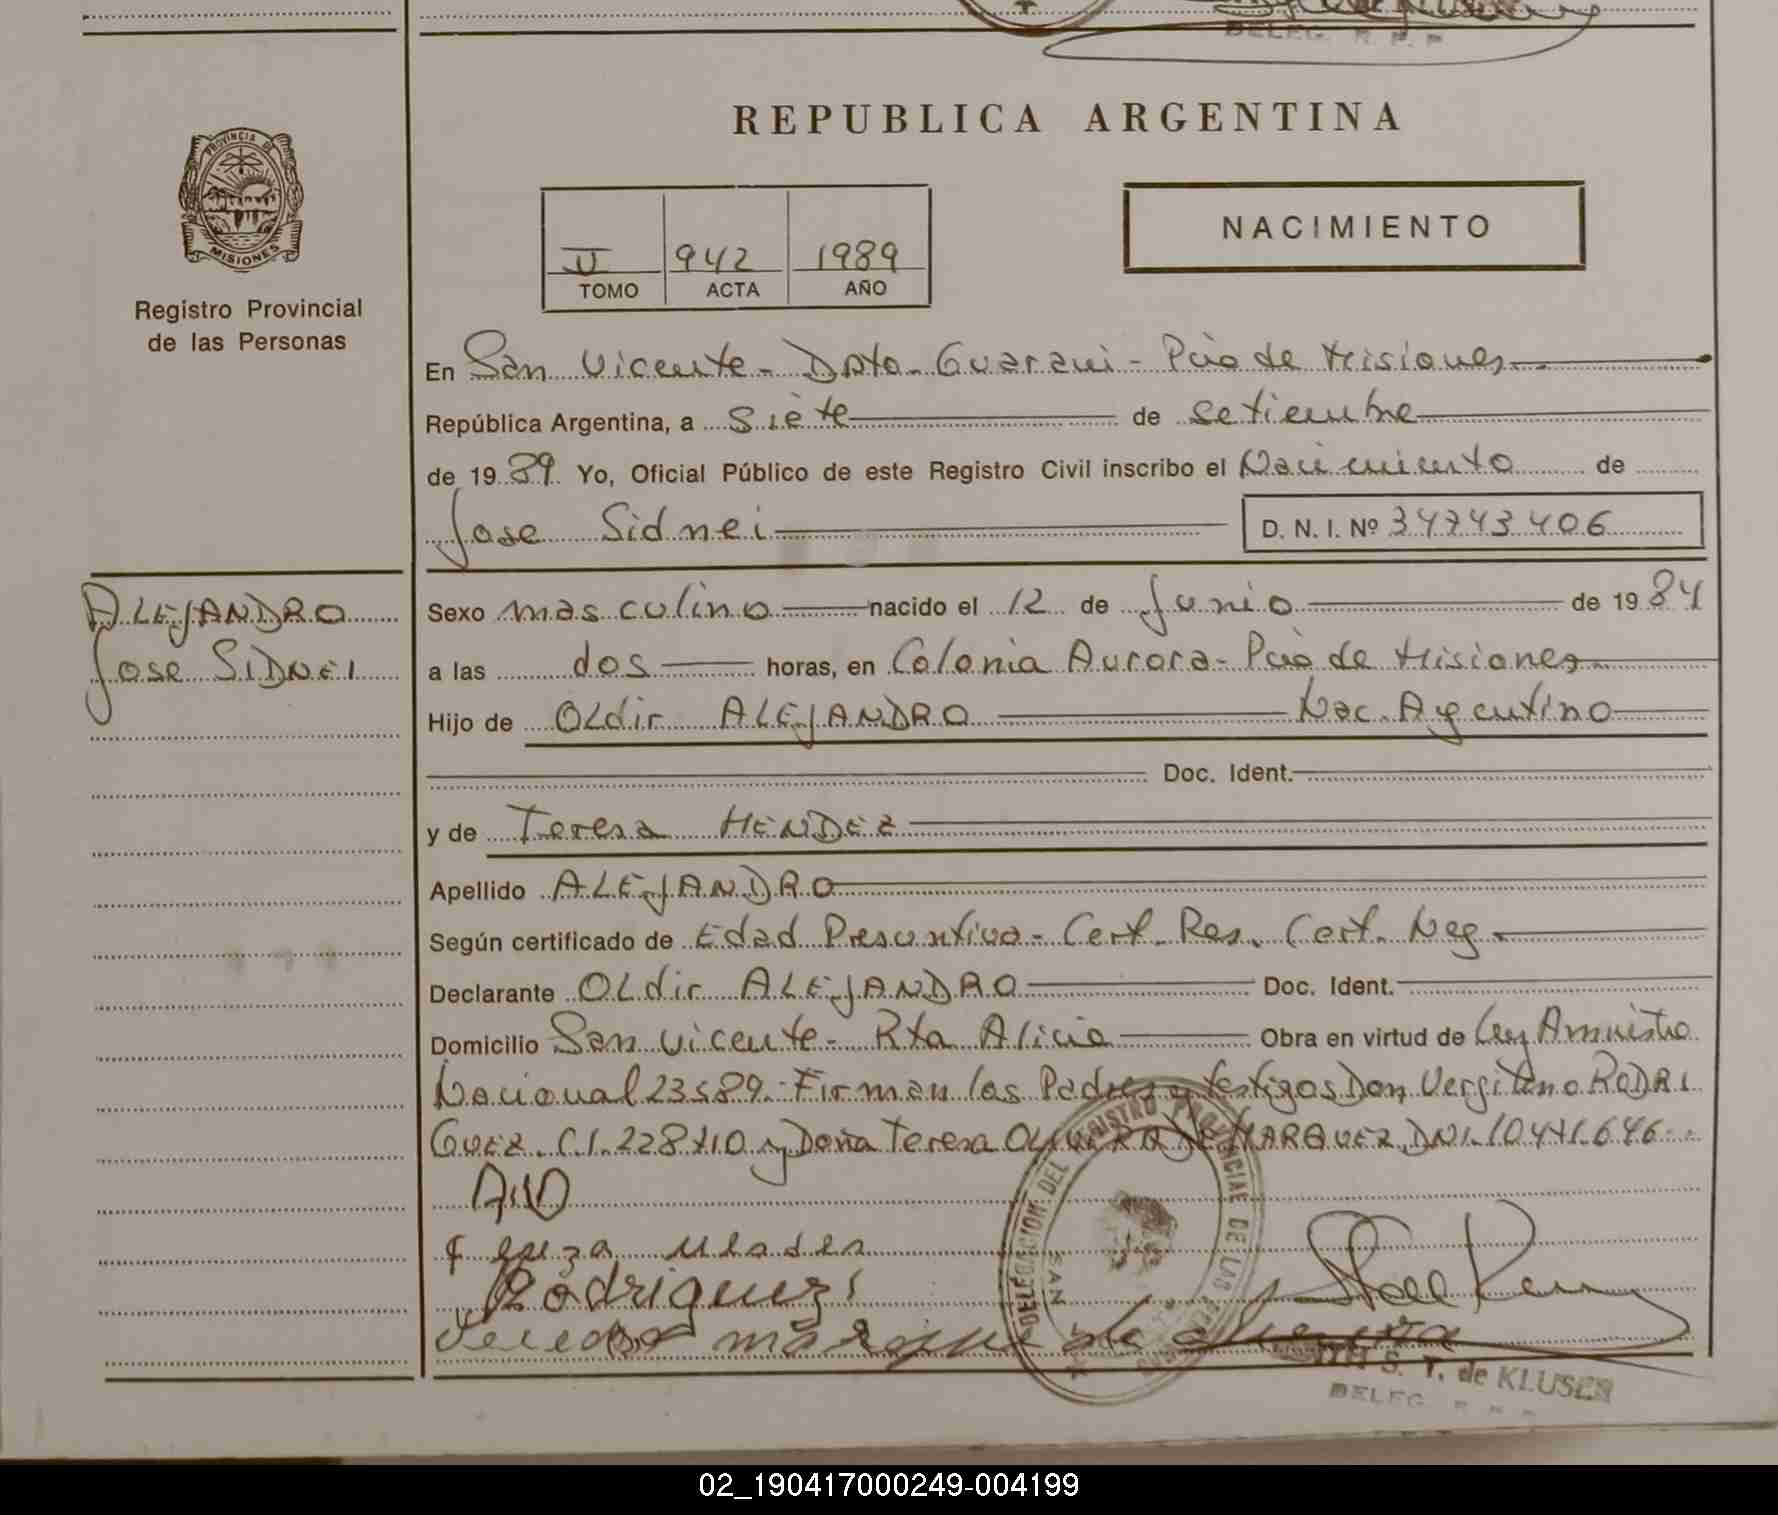 DELEG. R. P. P
REPUBLICA ARGENTINA
PROVINCIA DE
MISIONES
Registro Provincial
de las Personas
NACIMIENTO
II 942 1989
TOMO ACTA AÑO
En San Vicente - Dpto. Guarani - Pcia de Misiones
República Argentina, a siete de setiembre
de 1989 Yo, Oficial Público de este Registro Civil inscribo el Nacimiento de
Jose Sidnei D. N. I. Nº 34743406
ALEJANDRO
Jose SIDNEI
Sexo masculino nacido el 12 de Junio de 1984
a las dos horas, en Colonia Aurora - Pcia de Misiones
Hijo de OLdir ALEJANDRO Nac. Argentino
Doc. Ident.
y de Teresa MENDEZ
Apellido ALEJANDRO
Según certificado de Edad Presuntiva - Cert. Res. Cert. Neg.
Declarante OLdir ALEJANDRO Doc. Ident.
Domicilio San Vicente - Rta Alicia Obra en virtud de Ley Amnistia
Nacional 23589. Firman los Padres y testigos Don Vergilino RODRI
GUEZ. C.I. 228710 y Doña Teresa OLIVERA DE MARQUEZ DNI. 10.471.646
Rodriguez
DELEGACION DEL REGISTRO PROVINCIAL DE LAS
SAN
S. T. de KLUSER
DELEG
02_190417000249-004199